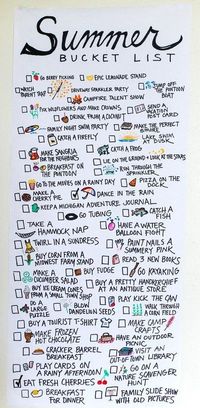 Summer
BUCKET LIST
GO BERRY PICKING
EPIC LEMONADE STAND
DRIVEWAY SPARKLER PARTY
JUMP OFF THE PONTOON BOAT
CAMPFIRE TALENT SHOW
PICK WILDFLOWERS AND MAKE CROWNS
SEND A VACATION POST CARD
DRINK FROM A COCONUT
FAMILY NIGHT SWIM PARTY
MAKE THE PERFECT S'MORE
CATCH A FIREFLY
LAKE SWIM AT DUSK
MAKE SANGRIA FOR THE NEIGHBORS
CATCH A FROG
LIE ON THE GROUND + LOOK AT THE STARS
BREAKFAST ON THE PONTOON
RUN THROUGH THE SPRINKLER
GO TO THE MOVIES ON A RAINY DAY
PIZZA ON THE DOCK
MAKE A CHERRY PIE
DANCE IN THE RAIN
KEEP A MICHIGAN ADVENTURE JOURNAL
GO TUBING
CATCH A FISH
TAKE A HAMMOCK NAP
HAVE A WATER BALLOON FIGHT
TWIRL IN A SUNDRESS
PAINT NAILS A SUMMERY PINK
BUY CORN FROM A MIDWEST FARM STAND
READ 3 NEW BOOKS
MAKE A CUCUMBER SALAD
BUY FUDGE
GO KAYAKING
BUY ICE CREAM CONES FROM A SMALL TOWN SHOP
BUY A PRETTY HANDKERCHIEF AT AN ANTIQUE STORE
PLAY KICK THE CAN
DO A LARGE PUZZLE
BLOW DANDELION SEEDS
WALK THROUGH A CORN FIELD
BUY A TOURIST T-SHIRT
MAKE CAMP CRAFTS
MAKE FROZEN HOT CHOCOLATE
HAVE AN OUTDOOR PICNIC
CRACKER BARREL BREAKFAST
VISIT AN OUT-OF-TOWN LIBRARY
PLAY CARDS ON A RAINY AFTERNOON
GO ON A NATURE SCAVENGER HUNT
EAT FRESH CHERRIES
BREAKFAST FOR DINNER
FAMILY SLIDE SHOW WITH OLD PICTURES